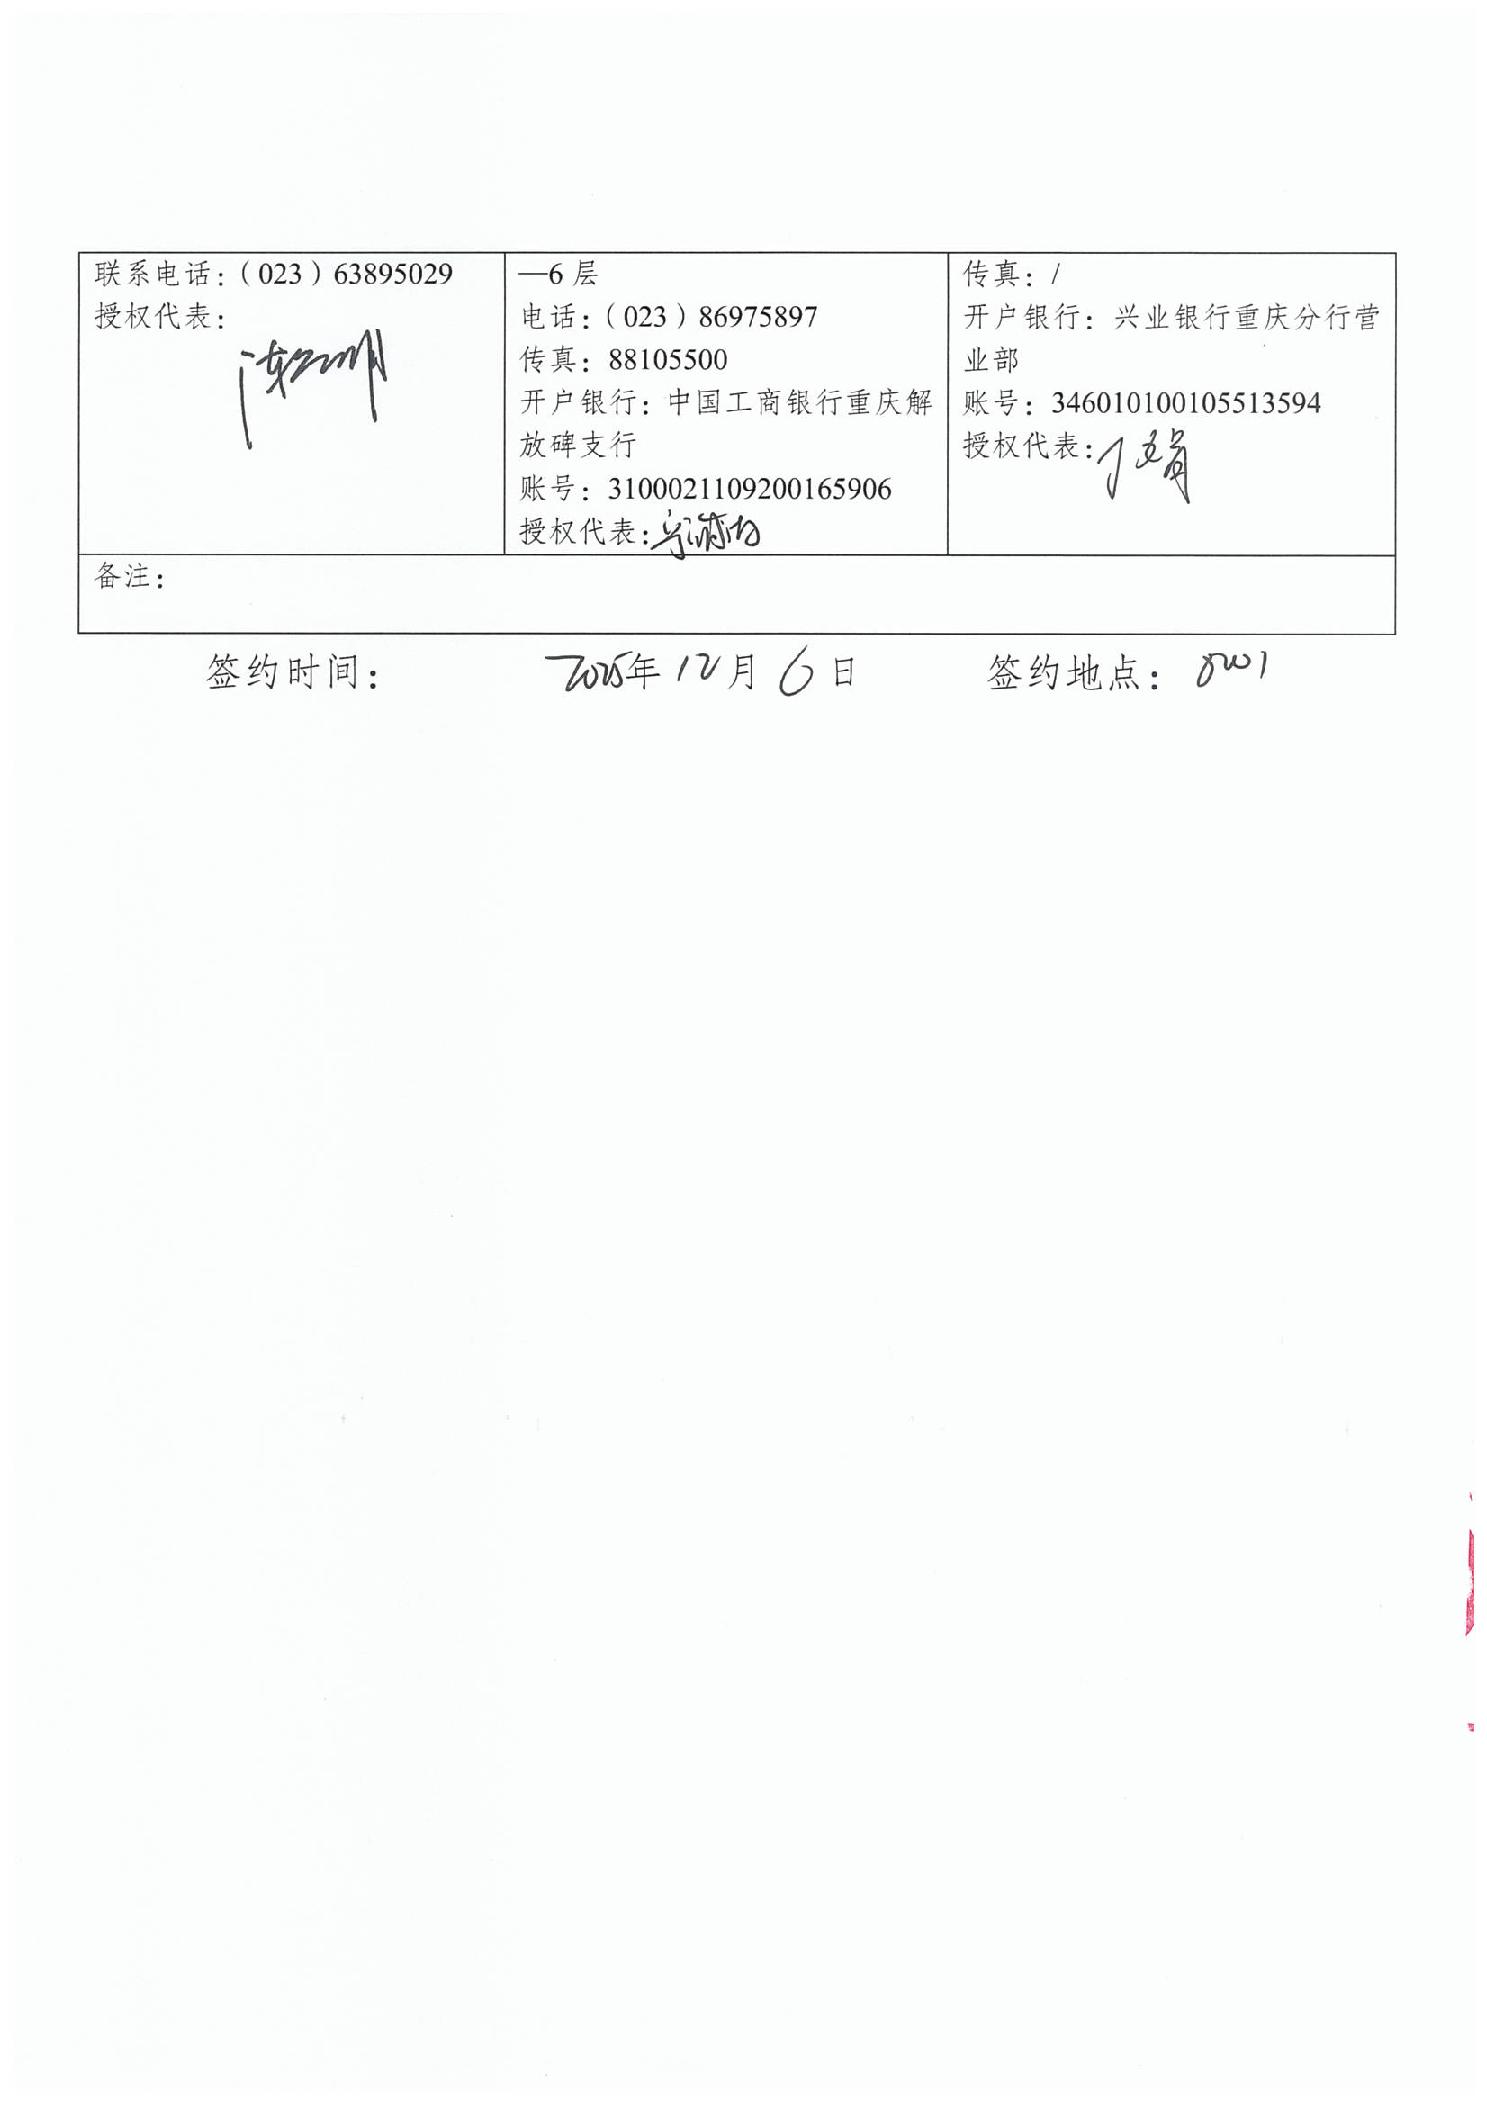 联系电话：（023）63895029
授权代表：
—6 层
电话：（023）86975897
传真：88105500
开户银行：中国工商银行重庆解
放碑支行
账号：3100021109200165906
授权代表：
传真：/
开户银行：兴业银行重庆分行营
业部
账号：346010100105513594
授权代表：
备注：
签约时间： 2025年 12 月 6 日 签约地点：